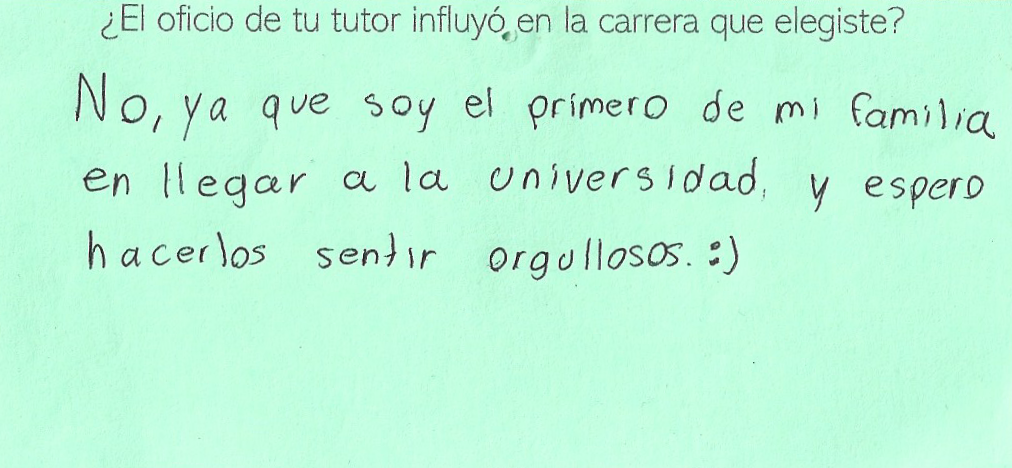 ¿El oficio de tu tutor influyó en la carrera que elegiste?
No, ya que soy el primero de mi familia
en llegar a la universidad, y espero
hacerlos sentir orgullosos. :)